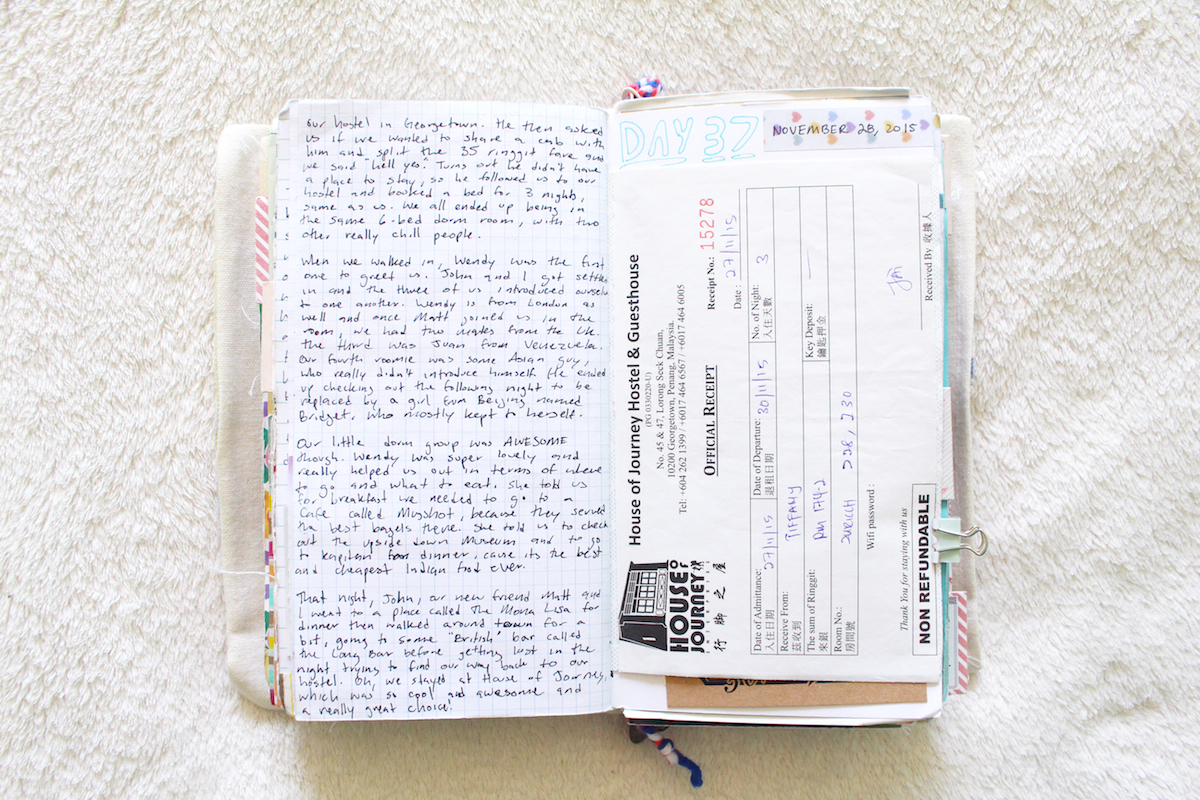 our hostel in Georgetown. He then asked
us if we wanted to share a cab with
him and split the 35 ringgit fare and
we said "hell yes". Turns out he didn't have
a place to stay, so he followed us to our
hostel and booked a bed for 3 nights,
same as us. We all ended up being in
the same 6-bed dorm room, with two
other really chill people.
When we walked in, Wendy was the first
one to greet us. John and I got settled
in and the three of us introduced ourselv
to one another. Wendy is from London as
well and once Matt joined us in the
room, we had two mates from the UK.
The third was Juan from Venezuela.
Our fourth roomie was some Asian guy,
who really didn't introduce himself. He ended
up checking out the following night to be
replaced by a girl from Beijing named
Bridget, who mostly kept to herself.
Our little dorm group was AWESOME
though. Wendy was super lovely and
really helped us out in terms of where
to go and what to eat. She told us
for breakfast we needed to go to a
cafe called Mugshot, because they served
the best bagels there. She told us to check
out the upside down Museum and to go
to Kapitan for dinner, cause its the best
and cheapest Indian food ever.
That night, John, our new friend Matt and
I went to a place called The Mona Lisa for
dinner then walked around town for a
bit, going to some "British" bar called
the Long Bar before getting lost in the
night trying to find our way back to our
hostel. Oh, we stayed at House of Journey,
which was so cool and awesome and
a really great choice!
DAY 37
NOVEMBER 28, 2015
HOUSE OF
JOURNEY
ENTERPRISE
行脚之屋
House of Journey Hostel & Guesthouse
(PG 0330220-U)
No. 45 & 47, Lorong Seck Chuan,
10200 Georgetown, Penang, Malaysia.
Tel: +604 262 1399 / +6017 464 6567 / +6017 464 6005
OFFICIAL RECEIPT
Receipt No.: 15278
Date: 27/11/15
Date of Admittance: 27/11/15 Date of Departure: 30/11/15 No. of Night: 3
入住日期 退租日期 入住天數
Receive From: TIFFANY
茲收到
The sum of Ringgit: RM 174-2 Key Deposit: —
來銀 鑰匙押金
Room No.: ZURICH 228, 230
房間號
Wifi password :
Received By 收據人
Thank You for staying with us
NON REFUNDABLE